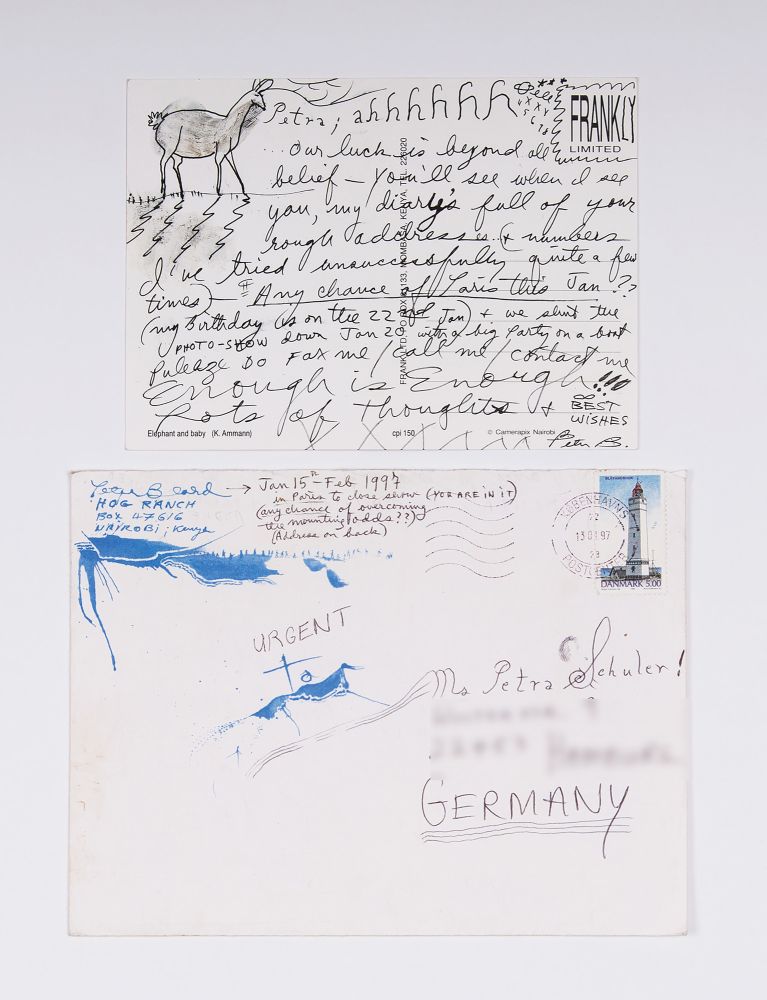 Petra; ahhhhhh
FRANKLY
LIMITED
... Our luck is beyond all
belief - You'll see when I see
you, my diary's full of your
rough addresses (+ numbers
I've tried unsuccessfully quite a few
times) - Any chance of Paris this Jan??
(my birthday is on the 22nd Jan) + we shut the
PHOTO-SHOW down Jan 20 with a big Party on a boat
Puleaze DO Fax me / call me / contact me
Enough is Enough!!!!
Lots of thoughts + BEST
WISHES
Peter B.
FRANK LTD, PO BOX 133, MOMBASA, KENYA, TEL. 226020
Elephant and baby (K. Ammann)
cpi 150
© Camerapix Nairobi
Peter Beard → Jan 15th - Feb 1997
HOG RANCH
BOX 47616
NAIROBI; Kenya
in Paris to close show (YOU ARE IN IT)
(any chance of overcoming
the mounting odds??)
(Address on back)
KØBENHAVNS
22
13.01.97
23
POSTCENTER
DANMARK 5.00
URGENT
To
Ms Petra Schuler!
GERMANY